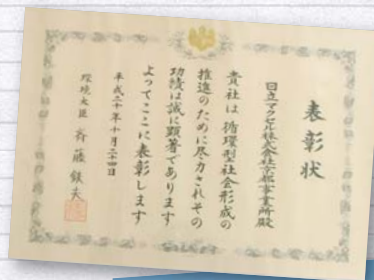 表彰状
日立マクセル株式会社京都事業所殿
貴社は循環型社会形成の
推進のために尽力されその
功績は誠に顕著であります
よってここに表彰します
平成二十年十月二十四日
環境大臣 斉藤鉄夫